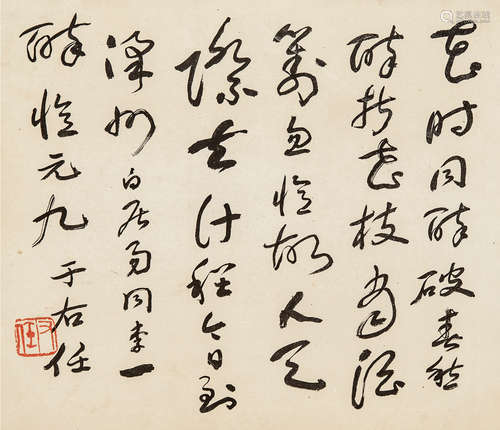 花时同醉破春愁
醉折花枝当酒
筹忽忆故人天
际去计程今日到
梁州 白居易同李一
醉忆元九 于右任